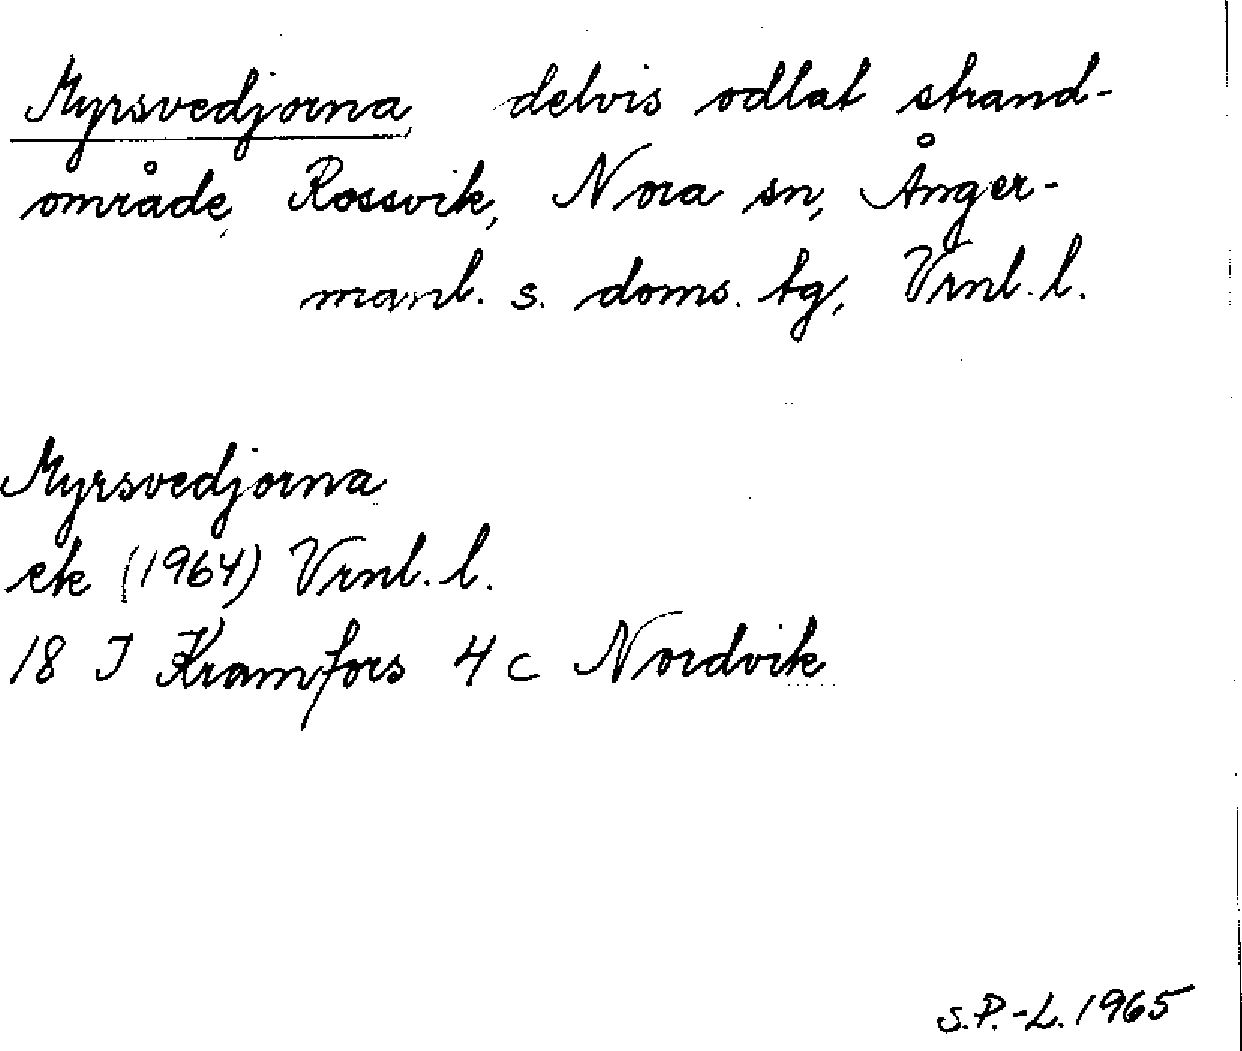 Myrsvedjorna, delvis odlat strand-
område, Rossvik, Nora sn, Ånger-
manl. s. doms. tg, Vrnl. l.
Myrsvedjorna
ek (1964) Vrnl. l.
18 I Kramfors 4 c Nordvik
S.P.-L. 1965